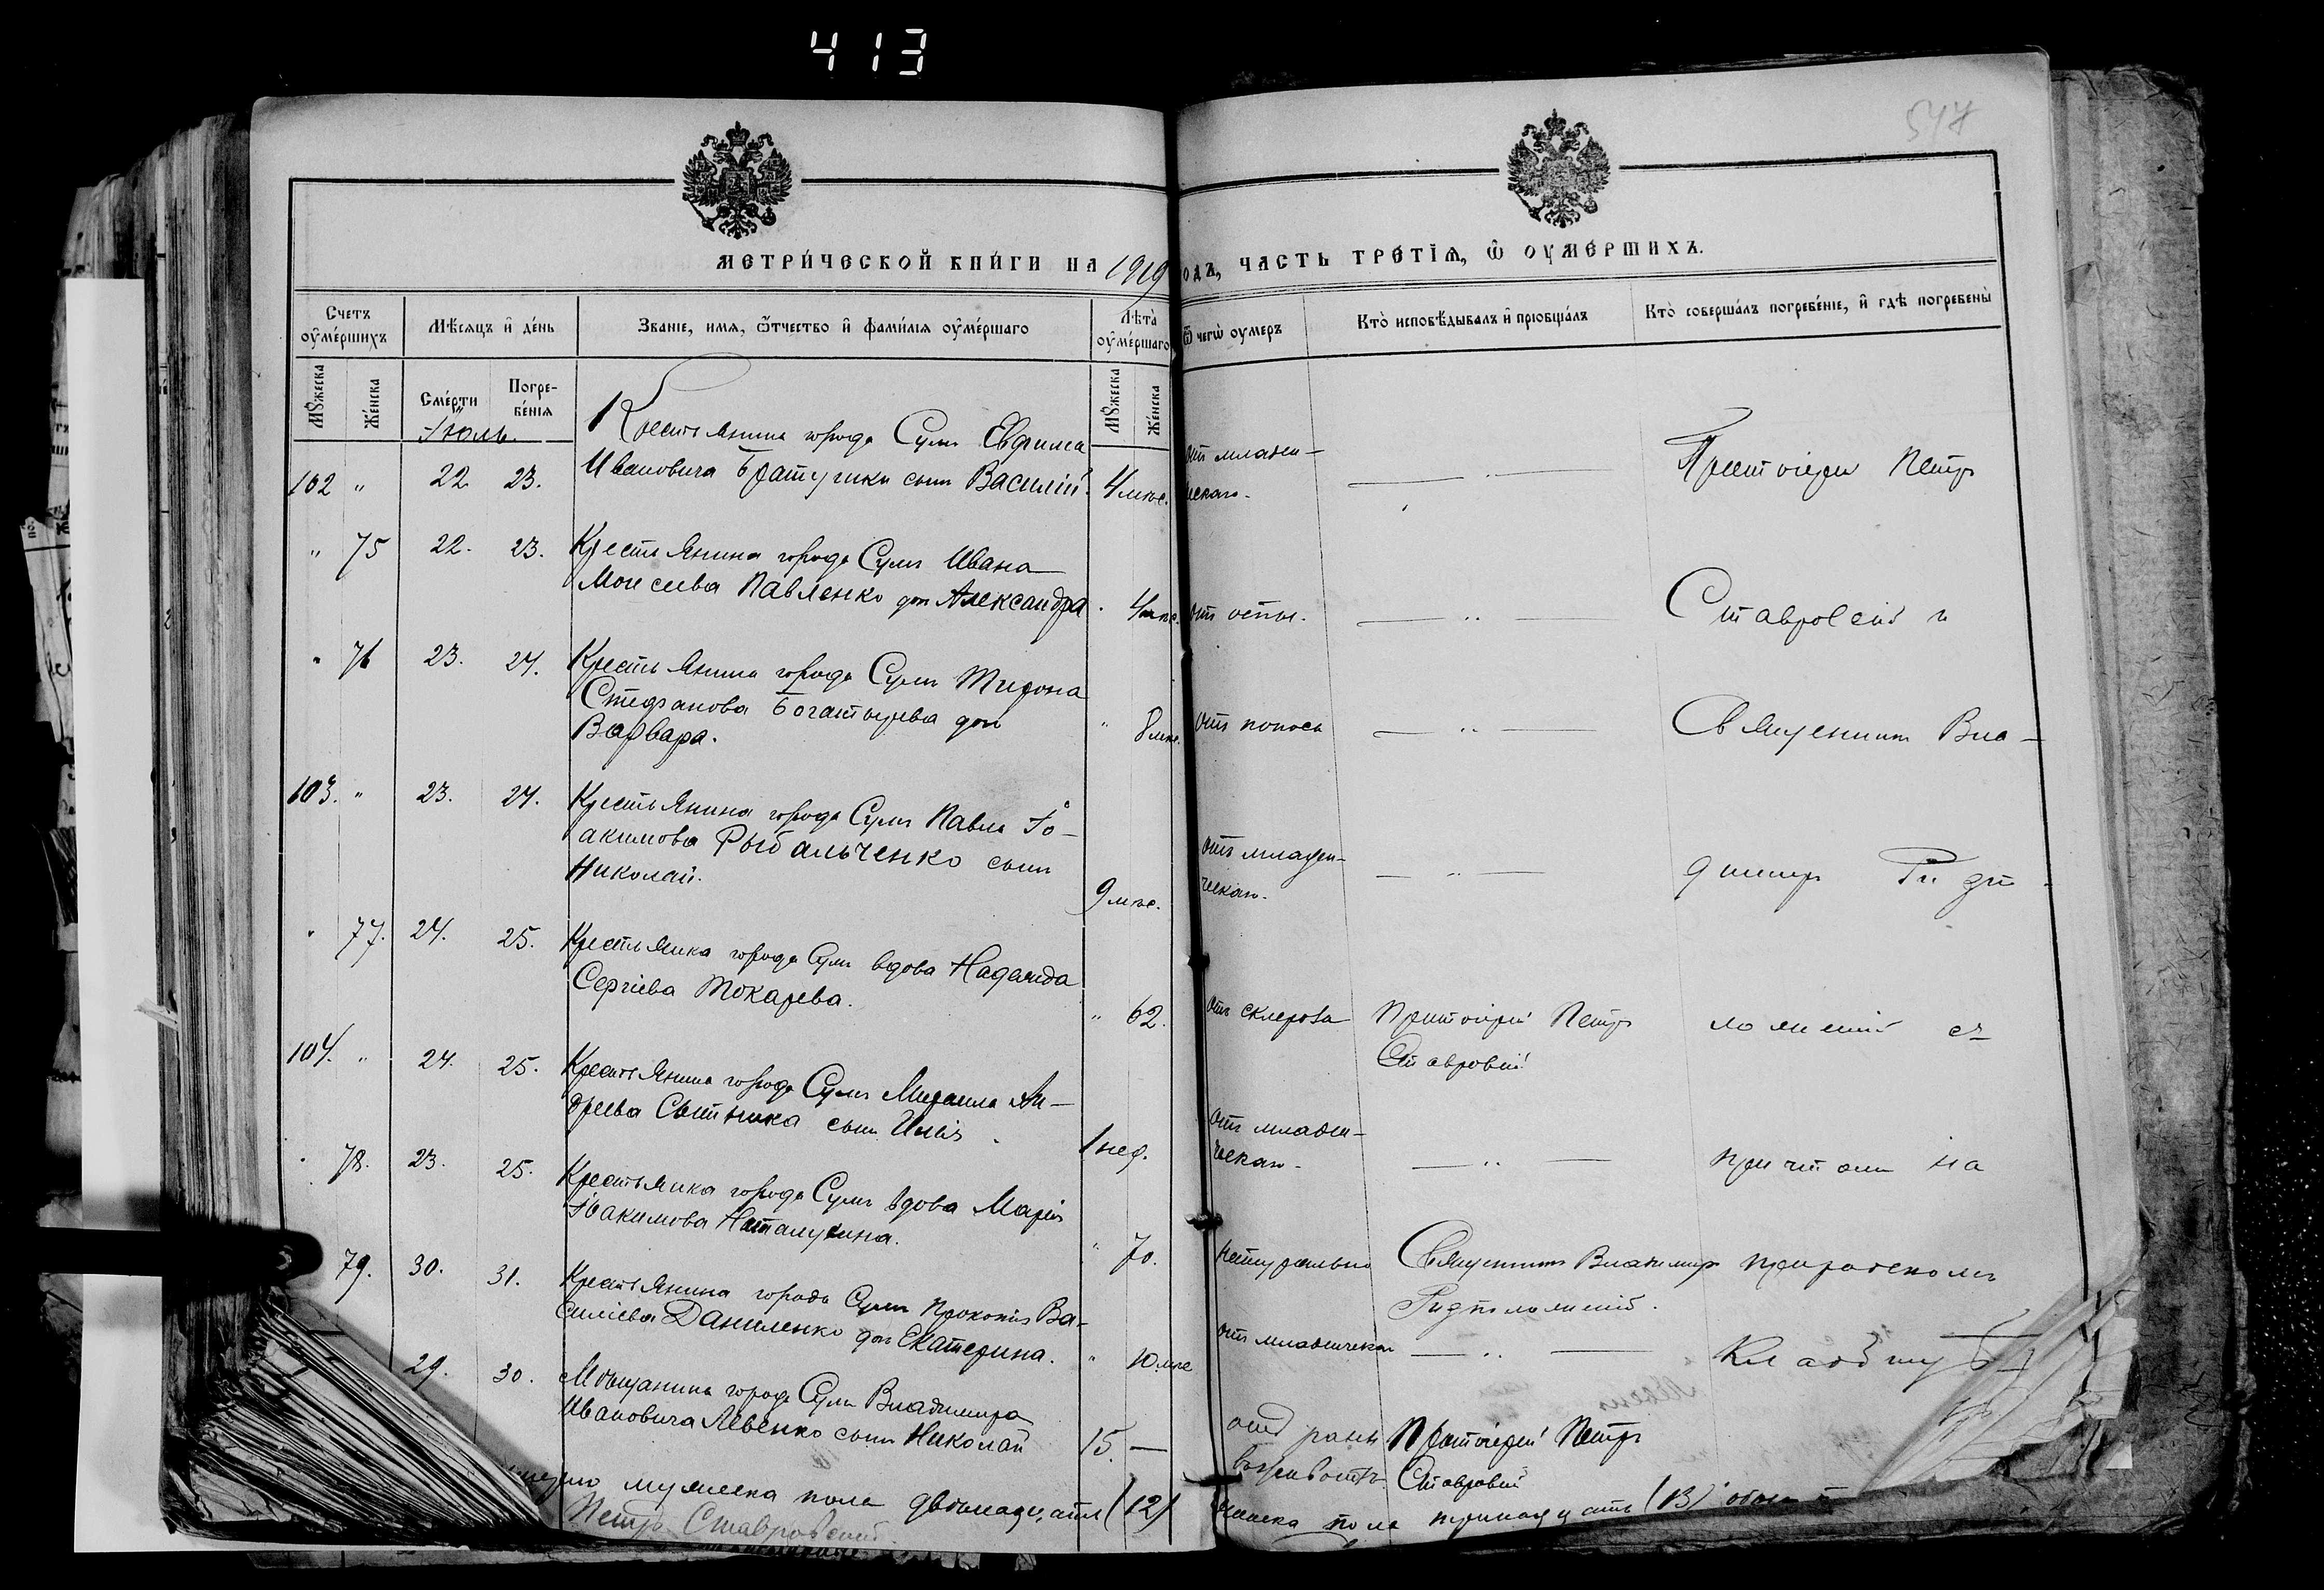 413
547
МЕТРИ́ЧЕСКОЙ КНИ́ГИ НА 1919
ОДЪ, ЧАСТЬ ТРЕТІѦ, Ѿ ОУМЕ́РШИХЪ.
Счетъ оу҆ме́ршихъ
Мѣсяцъ и҆ де́нь
Званіе, имя, ѻ҆́тчество и҆ фами́лія оу҆ме́ршаго
Лѣта̀ оу҆ме́ршаго
Ѿ чегѡ̀ оумеръ
Кто̀ исповѣ́дывалъ и҆ пріобща́лъ
Кто̀ соверша́лъ погребе́ніе, и҆ гдѣ̀ погребены̀
Мꙋжеска
Же́нска
Сме́рти
Погре-
бе́нія
Мꙋжеска
Же́нска
Іюль.
Крестьянина города Сумъ Евфима
102 " 22 23. Ивановича Братушки сынъ Василій. 4 мѣс.
от младен-
ческаго.
Протоіерей Петръ
" 75 22. 23. Крестьянина города Сумъ Ивана
Моисеева Павленко доч Александра. 4 мѣс.
от оспы.
Ставровскій и
" 76 23. 24. Крестьянина города Сумъ Тихона
Стефанова Богатырева доч
Варвара. " 8 мѣс.
отъ поноса
Священникъ Вла-
103. " 23. 24. Крестьянина города Сумъ Павла Іо-
акимова Рыбальченко сынъ
Николай. 9 мѣс.
отъ младен-
ческаго.
димиръ
" 77. 24. 25. Крестьянка города Сумъ вдова Надежда
Сергіева Токарева. " 62.
отъ склероза Протоіерей Петръ
Ставровскій
съ
104. " 24. 25. Крестьянина города Сумъ Михаила Ан-
дреева Сытника сынъ Илія. 1 нед.
отъ младен-
ческаго.
причтомъ на
" 78. 23. 25. Крестьянка города Сумъ вдова Марія
Іоакимова " 70.
натурально Священникъ Владимиръ
приходскомъ
79. 30. 31. Крестьянина города Сумъ Прокопія Ва-
силіева Даниленко доч Екатерина. " 10 мѣс
отъ младенческаго
Кладбищѣ
29. 30. Мѣщанина города Сумъ Владимира
Ивановича Левенко сынъ Николай 15. —
отъ раны
въ животъ
Протоіерей Петръ
Ставровскій
мужеска пола двѣнадцать (12)
женска пола тринадцать (13) обоего
Петръ Ставровскій